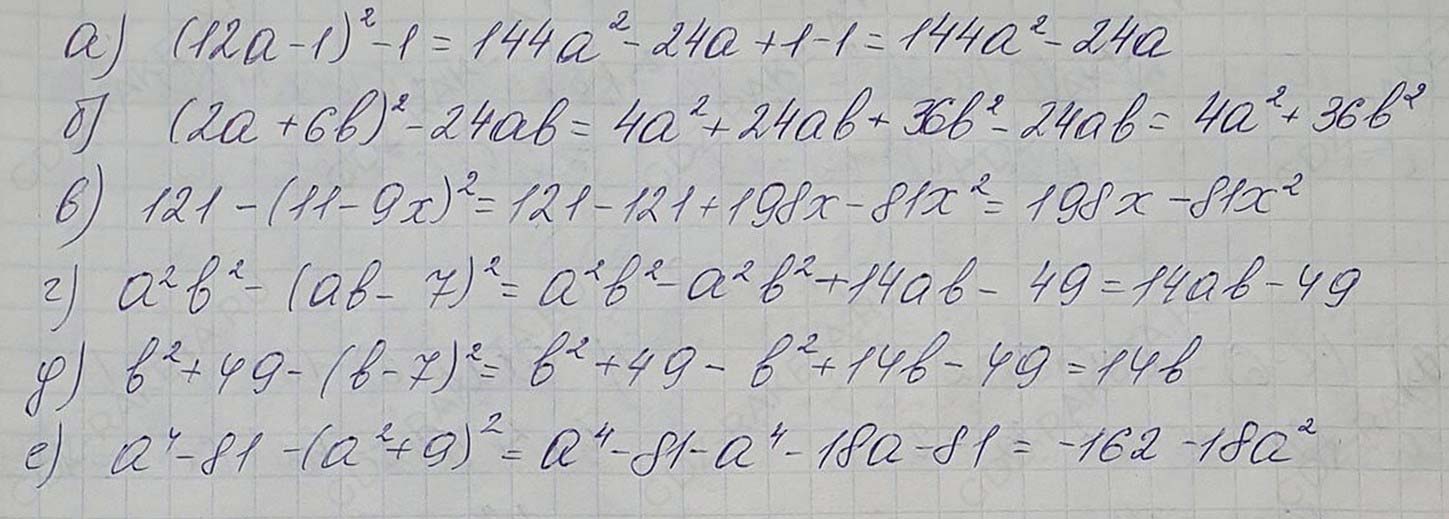 а) (12a-1)²-1=144a²-24a+1-1=144a²-24a
б) (2a+6b)²-24ab=4a²+24ab+36b²-24ab=4a²+36b²
в) 121-(11-9x)²=121-121+198x-81x²=198x-81x²
г) a²b²-(ab-7)²=a²b²-a²b²+14ab-49=14ab-49
д) b²+49-(b-7)²=b²+49-b²+14b-49=14b
е) a⁴-81-(a²+9)²=a⁴-81-a⁴-18a-81=-162-18a²